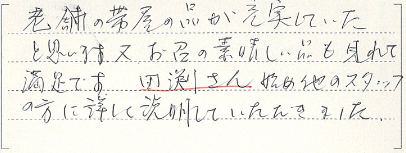 老舗の帯屋の品が充実していた
と思います又お召の素晴しい品も見れて
満足です 田渕さん始め他のスタッフ
の方に詳しく説明していただきました。